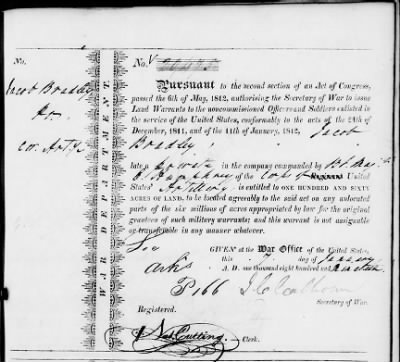 No.
Jacob Bradley
Cor. Arty
WAR DEPARTMENT.
No.
Pursuant to the second section of an Act of Congress,
passed the 6th of May, 1812, authorising the Secretary of War to issue
Land Warrants to the noncommissioned Officers and Soldiers enlisted in
the service of the United States, conformably to the acts of the 24th of
December, 1811, and of the 11th of January, 1812, Jacob
Bradley
late a private in the company commanded by
Humphrey of the Corps of United
States' Artillery, is entitled to ONE HUNDRED AND SIXTY
ACRES OF LAND, to be located agreeably to the said act on any unlocated
parts of the six millions of acres appropriated by law for the original
grantees of such military warrants; and this warrant is not assignable
or transferable in any manner whatever.
GIVEN at the War Office of the United States,
this 7 day of January
A. D. one thousand eight hundred and
Ark
P 166 J. C. Calhoun
Secretary of War.
Registered.
Cutting Clerk.